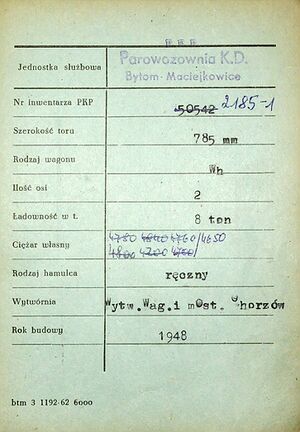 Jednostka służbowa Parowozownia K.D.
Bytom-Maciejkowice
Nr inwentarza PKP 50542 2185-1
Szerokość toru 785 mm
Rodzaj wagonu Wh
Ilość osi 2
Ładowność w t. 8 ton
Ciężar własny 4780 4840 4760/4650
4800 4200 4750/
Rodzaj hamulca ręczny
Wytwórnia Wytw.Wag.i mOst. Chorzów
Rok budowy 1948
btm 3 1192-62 6000